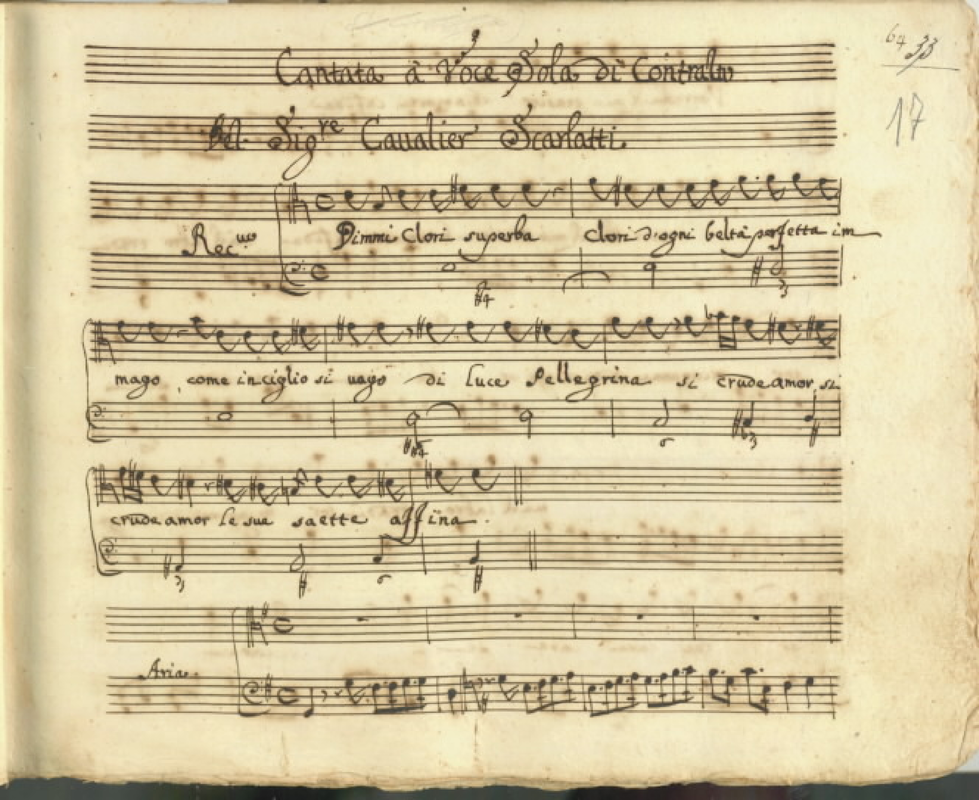 64 33
17
Cantata à Voce Sola di Contralto
Del Sig.re Cavalier Scarlatti.
Rec.vo
Dimmi Clori superba Clori d'ogni beltà perfetta im
mago come in ciglio si vago di luce Pellegrina si crude amor, si
crude amor le sue saette affina.
Aria.